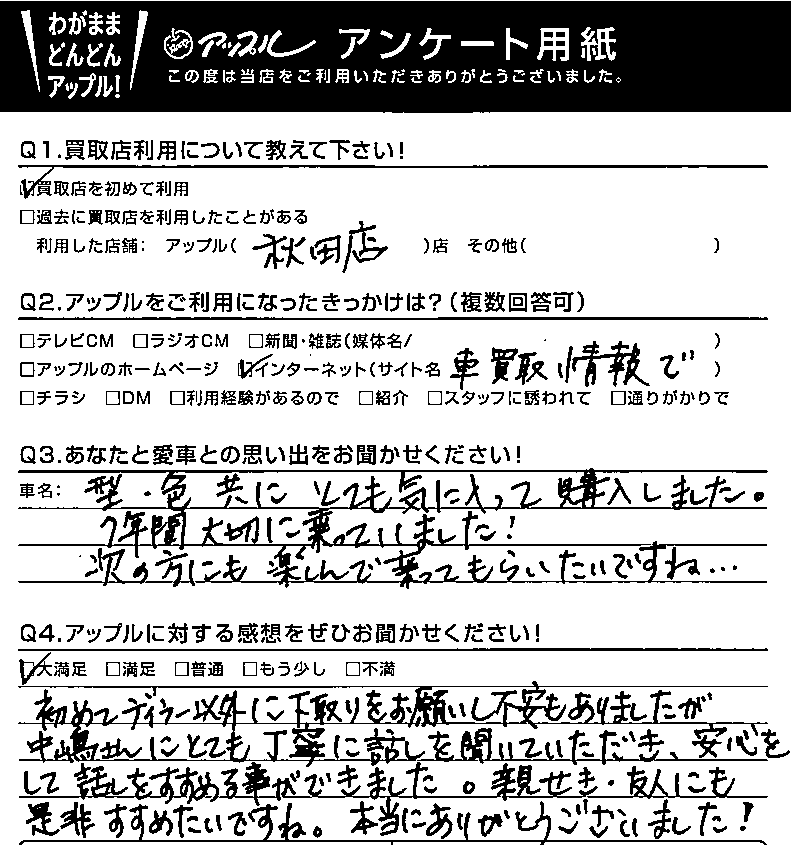 わがまま
どんどん
アップル!
アップル アンケート用紙
この度は当店をご利用いただきありがとうございました。
Q1.買取店利用について教えて下さい!
☑買取店を初めて利用
□過去に買取店を利用したことがある
利用した店舗: アップル( 秋田店 )店 その他( )
Q2.アップルをご利用になったきっかけは?(複数回答可)
□テレビCM □ラジオCM □新聞・雑誌(媒体名/ )
□アップルのホームページ ☑インターネット(サイト名 車買取情報で )
□チラシ □DM □利用経験があるので □紹介 □スタッフに誘われて □通りがかりで
Q3.あなたと愛車との思い出をお聞かせください!
車名: 型・色 共に とても気に入って 購入しました。
7年間 大切に乗っていました!
次の方にも 楽しんで乗ってもらいたいですね…
Q4.アップルに対する感想をぜひお聞かせください!
☑大満足 □満足 □普通 □もう少し □不満
初めてディラー以外に下取りをお願いし不安もありましたが
中嶋さんにとても丁寧に話しを聞いていただき、安心を
して話しをすすめる事ができました。親せき・友人にも
是非すすめたいですね。本当にありがとうございました!